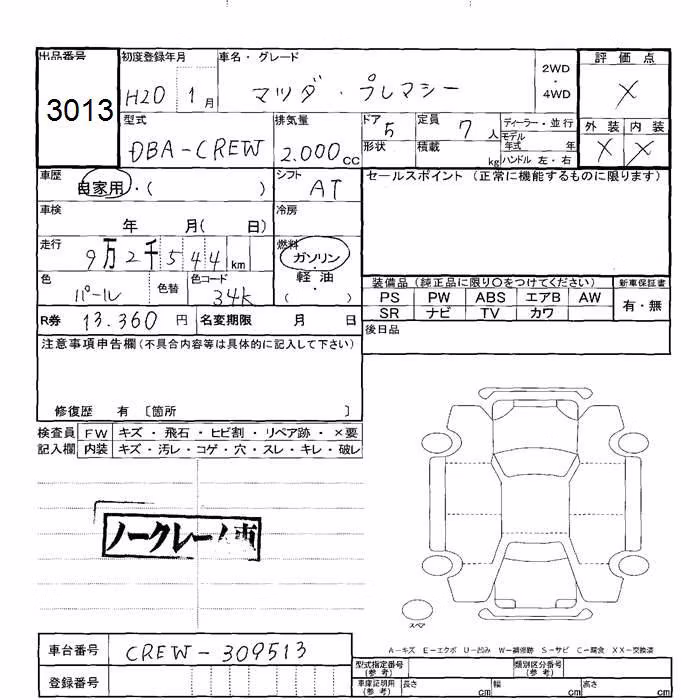 出品番号 初度登録年月 車名・グレード 2WD・4WD 評価点
3013 H20 1月 マツダ・プレマシー X
型式 排気量 ドア 定員 ディーラー・並行 外装 内装
DBA-CREW 2.000cc 5 7人 モデル年式 年 X X
形状 積載 kg ハンドル 左・右
車歴 シフト セールスポイント (正常に機能するものに限ります)
自家用・( ) AT
車検 冷房
年 月( 日)
走行 燃料
9万2千544km ガソリン・
軽油・
色 色替 色コード ( ) 装備品 (純正品に限り○をつけてください) 新車保証書
パール 34K PS PW ABS エアB AW 有・無
R券 13.360円 名変期限 月 日 SR ナビ TV カワ
後日品
注意事項申告欄(不具合内容等は具体的に記入して下さい)
修復歴 有 〔箇所 〕
検査員 FW キズ・飛石・ヒビ割・リペア跡・×要
記入欄 内装 キズ・汚レ・コゲ・穴・スレ・キレ・破レ
ノークレーム車
スペア
A-キズ E-エクボ U-凹み W-補修跡 S-サビ C-腐食 XX-交換済
車台番号 CREW-309513
型式指定番号(参考) 類別区分番号(参考)
登録番号
車庫証明用(参考) 長さ cm 幅 cm 高さ cm